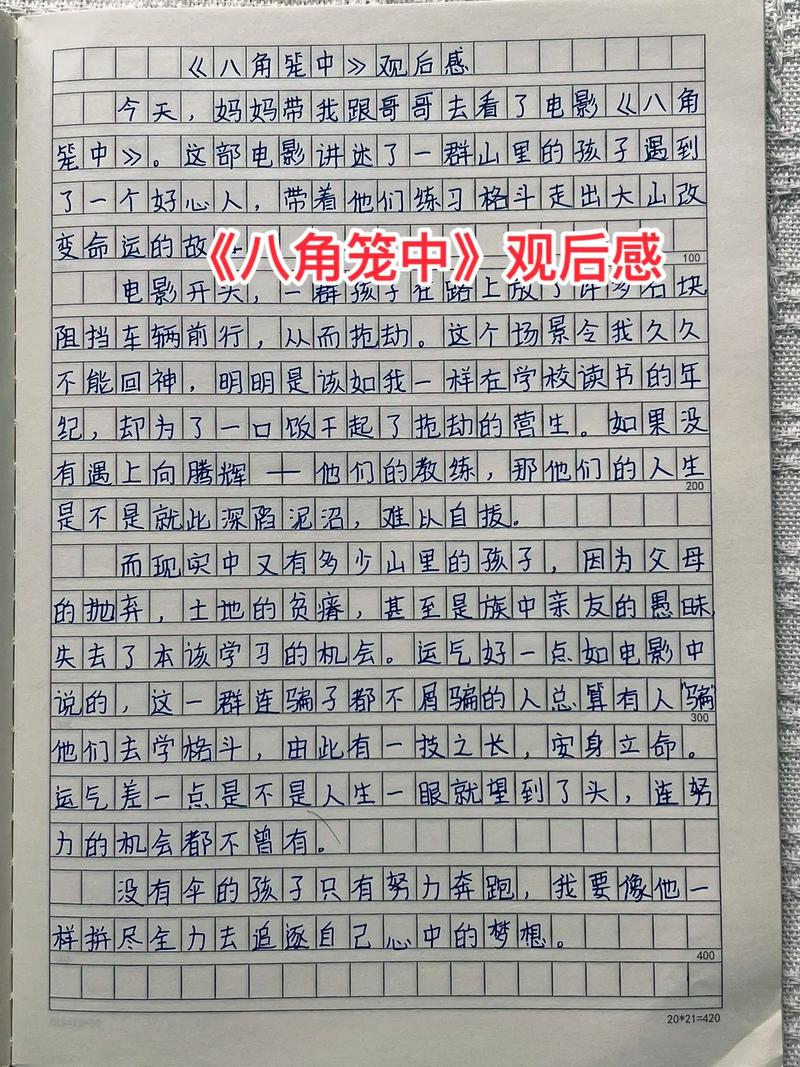 《八角笼中》观后感
今天，妈妈带我跟哥哥去看了电影《八角
笼中》。这部电影讲述了一群山里的孩子遇到
了一个好心人，带着他们练习格斗走出大山改
变命运的故
《八角笼中》观后感
100
电影开头，一群孩子在路上放了许多石块
阻挡车辆前行，从而抢劫。这个场景令我久久
不能回神，明明是该如我一样在学校读书的年
纪，却为了一口饭干起了抢劫的营生。如果没
有遇上向腾辉——他们的教练，那他们的人生
200
是不是就此深陷泥沼，难以自拔。
而现实中又有多少山里的孩子，因为父母
的抛弃，土地的贫瘠，甚至是族中亲友的愚昧，
失去了本该学习的机会。运气好一点如电影中
说的，这一群连骗子都不屑骗的人总算有人“骗”
300
他们去学格斗，由此有一技之长，安身立命。
运气差一点是不是人生一眼就望到了头，连努
力的机会都不曾有。
没有伞的孩子只有努力奔跑，我要像他一
样拼尽全力去追逐自己心中的梦想。
400
20*21=420